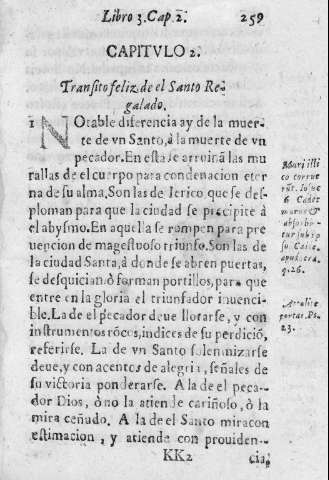 Libro 3. Cap. 2. 259
CAPITVLO 2.
Transito feliz de el Santo Re-
galado.
1 NOtable diferencia ay de la muer-
te de vn Santo, à la muerte de vn
pecador. En esta se arruinã las mu
rallas de el cuerpo para condenacion eter
na de su alma, Son las de Ierico que se des-
ploman para que la ciudad se precipite à
el abysmo. En aquella se rompen para pre
uencion de magestuoso triunfo. Son las de
la ciudad Santa, à donde se abren puertas,
se desquician, ò forman portillos, para que
entre en la gloria el triunfador inuenci-
ble. La de el pecador deue llorarse, y con
instrumentos rõcos, indices de su perdiciõ,
referirse. La de vn Santo solemnizarse
deue, y con acentos de alegria, señales de
su victoria ponderarse. A la de el peca-
dor Dios, ò no la atiende cariñoso, ò la
mira ceñudo. A la de el Santo mira con
estimacion, y atiende con prouiden-
KK2 cia,
Muri illi
co corrue
rũt. Iosue
6
absorbe-
q. 26.
portas. Ps.
23.